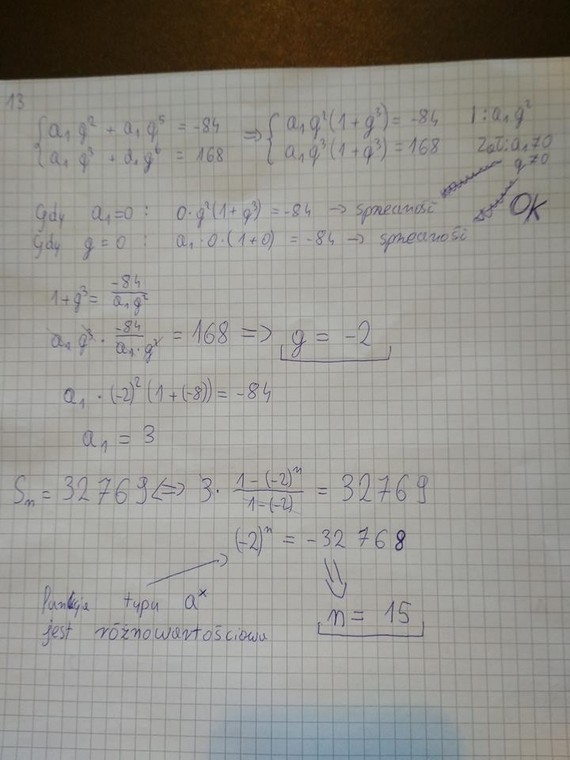 13
{ a₁ q² + a₁ q⁵ = -84 ⇒ { a₁ q² (1 + q³) = -84 | : a₁ q²
{ a₁ q³ + a₁ q⁶ = 168 { a₁ q³ (1 + q³) = 168 Zał: a₁ ≠ 0
q ≠ 0
Gdy a₁ = 0 : 0 · q² (1 + q³) = -84 → sprzeczność
OK
Gdy q = 0 : a₁ · 0 · (1 + 0) = -84 → sprzeczność
1 + q³ = -84 / a₁ q²
a₁ q³ · -84 / a₁ · q² = 168 ⇒ q = -2
a₁ · (-2)² (1 + (-8)) = -84
a₁ = 3
Sₙ = 32769 ⇔ 3 · 1 - (-2)ⁿ / 1 - (-2) = 32769
(-2)ⁿ = -32 768
Funkcja typu aˣ
n = 15
jest różnowartościowa